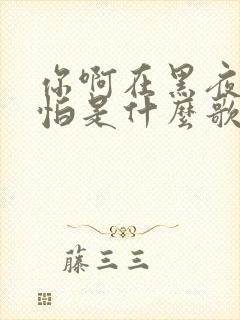 你啊在黑夜
怕是什麼歌
藤三三